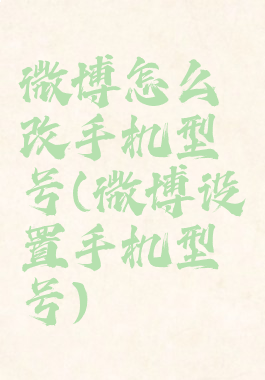 微博怎么
改手机型
号(微博设
置手机型
号)